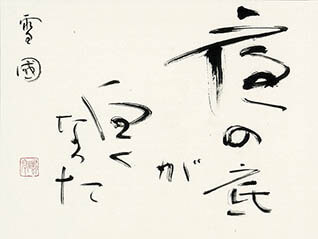 夜の底
が
白く
なった
雪國